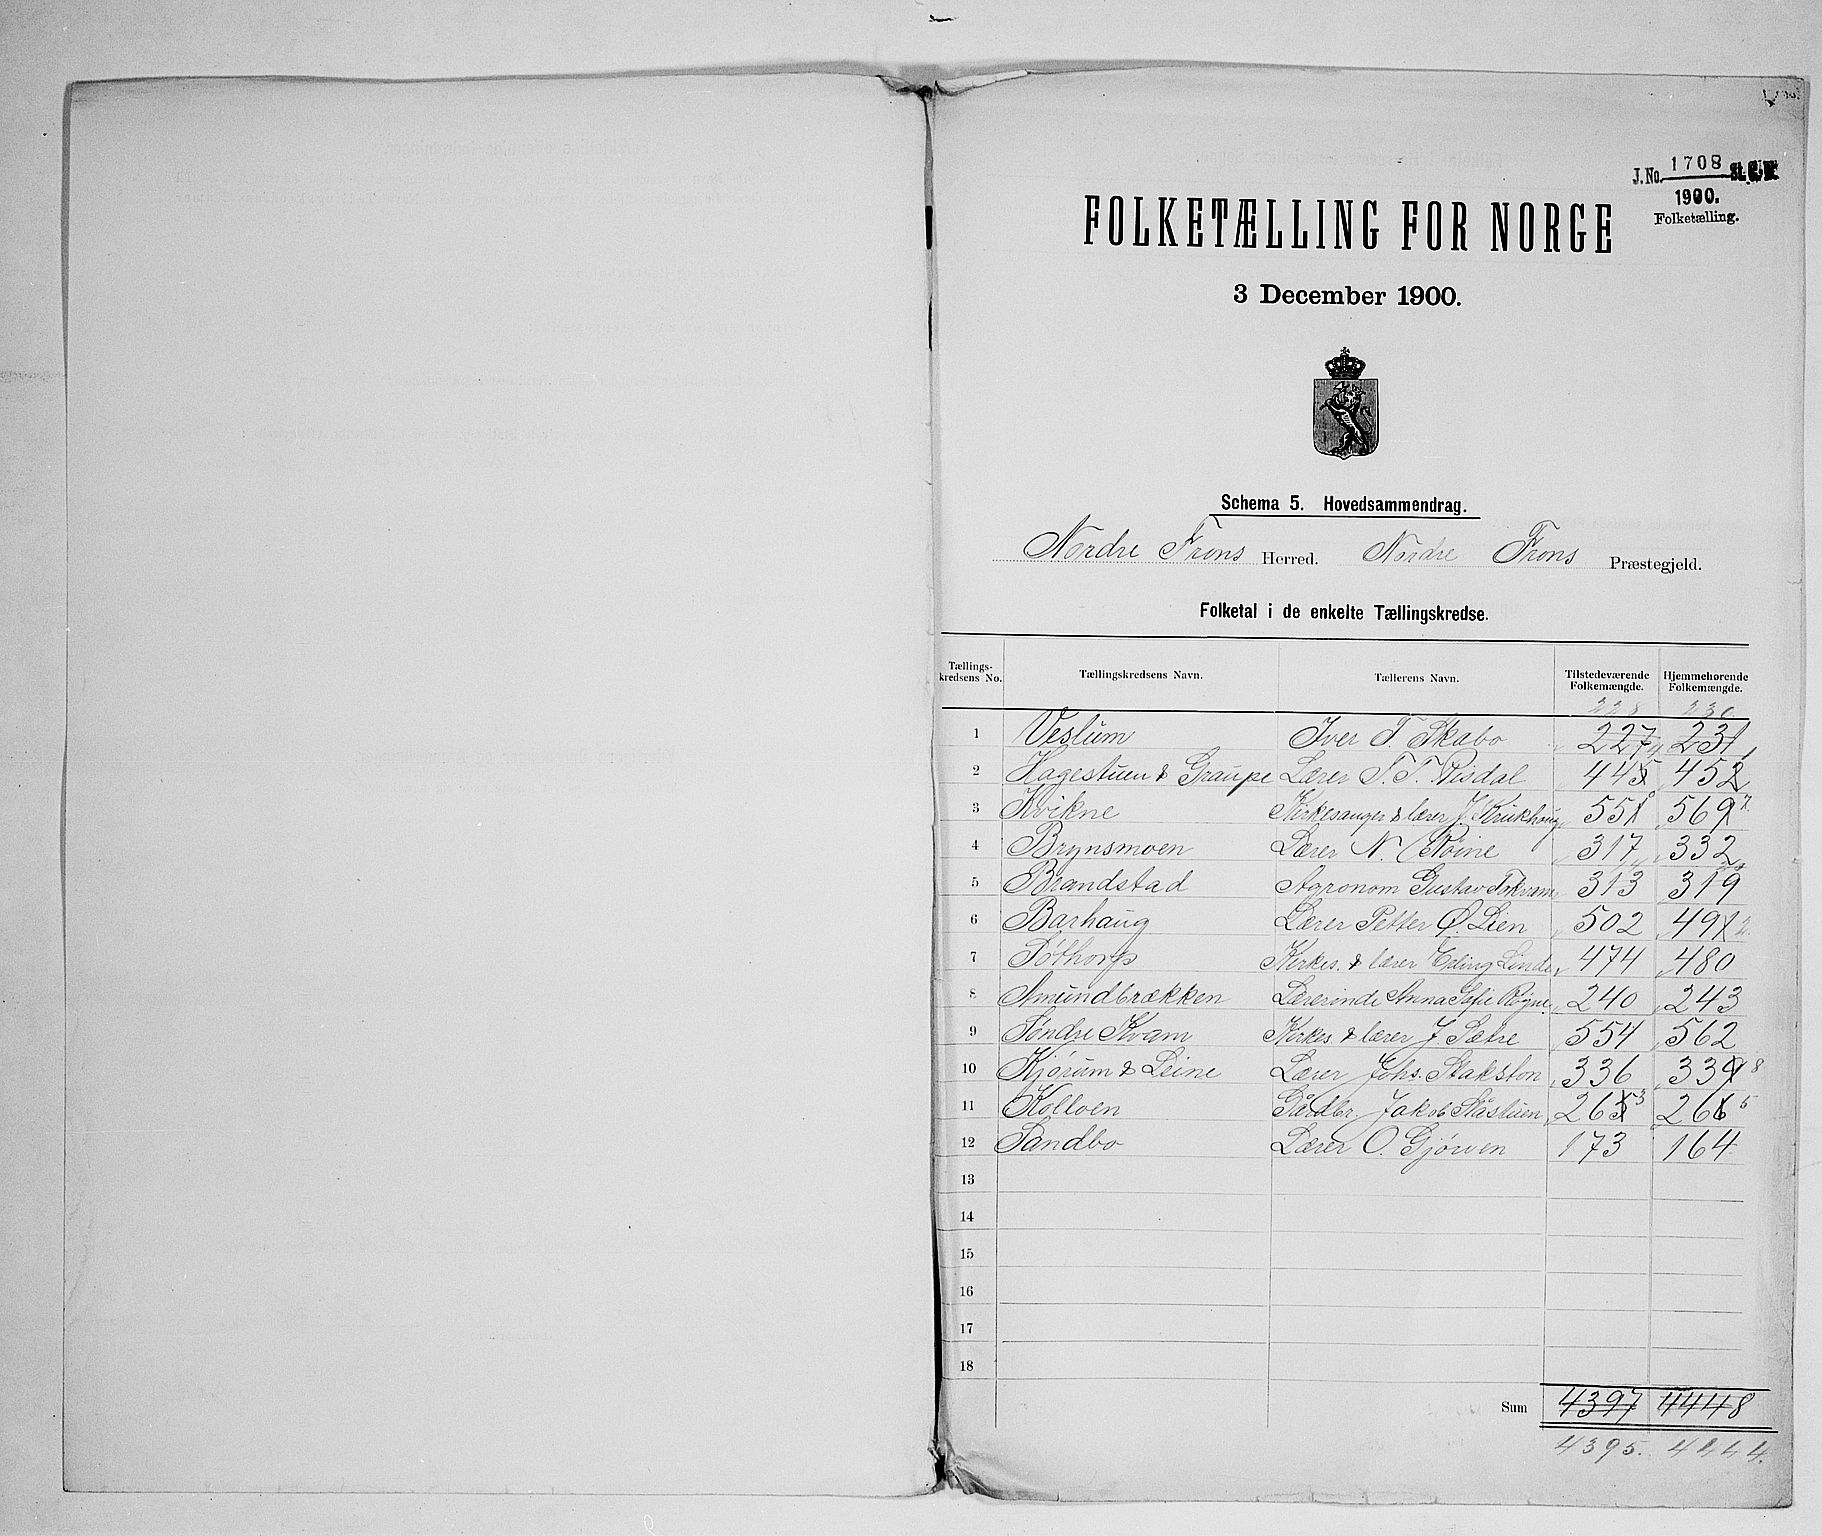 J. No. 1708 St. C. B.
1900.
Folketælling.
FOLKETÆLLING FOR NORGE
3 December 1900.
Schema 5. Hovedsammendrag.
Nordre Frons Herred. Nordre Frons Præstegjeld.
Folketal i de enkelte Tællingskredse.
Tællings-kredsens No. Tællingskredsens Navn. Tællerens Navn. Tilstedeværende Folkemængde. Hjemmehørende Folkemængde.
228 230
1 Veslum Iver T. Skabo 227 231
2 Hagestuen & Graupe Lærer T. T. Visdal 445 452
3 Kvikne Kirkesanger & lærer J. Krukhoug 551 569
4 Brynsmoen Lærer N. Røine 317 332
5 Brandstad Agronom Gustav Tokvam 313 319
6 Barhaug Lærer Petter Ø. Lien 502 491
7 Tøthorp Kirkes. & lærer Erling Linde 474 480
8 Amundbrækken Lærerinde Anna Sofie Røgne 240 243
9 Søndre Kvam Kirkes. & lærer J Sætre 554 562
10 Kjørum & Leine Lærer Johs. Stakston 336 339 8
11 Kolloen Gårdbr. Jakob Slåstuen 265 3 266 5
12 Sandbo Lærer O. Gjørven 173 164
13
14
15
16
17
18
Sum 4397 4448
4395. 4444.